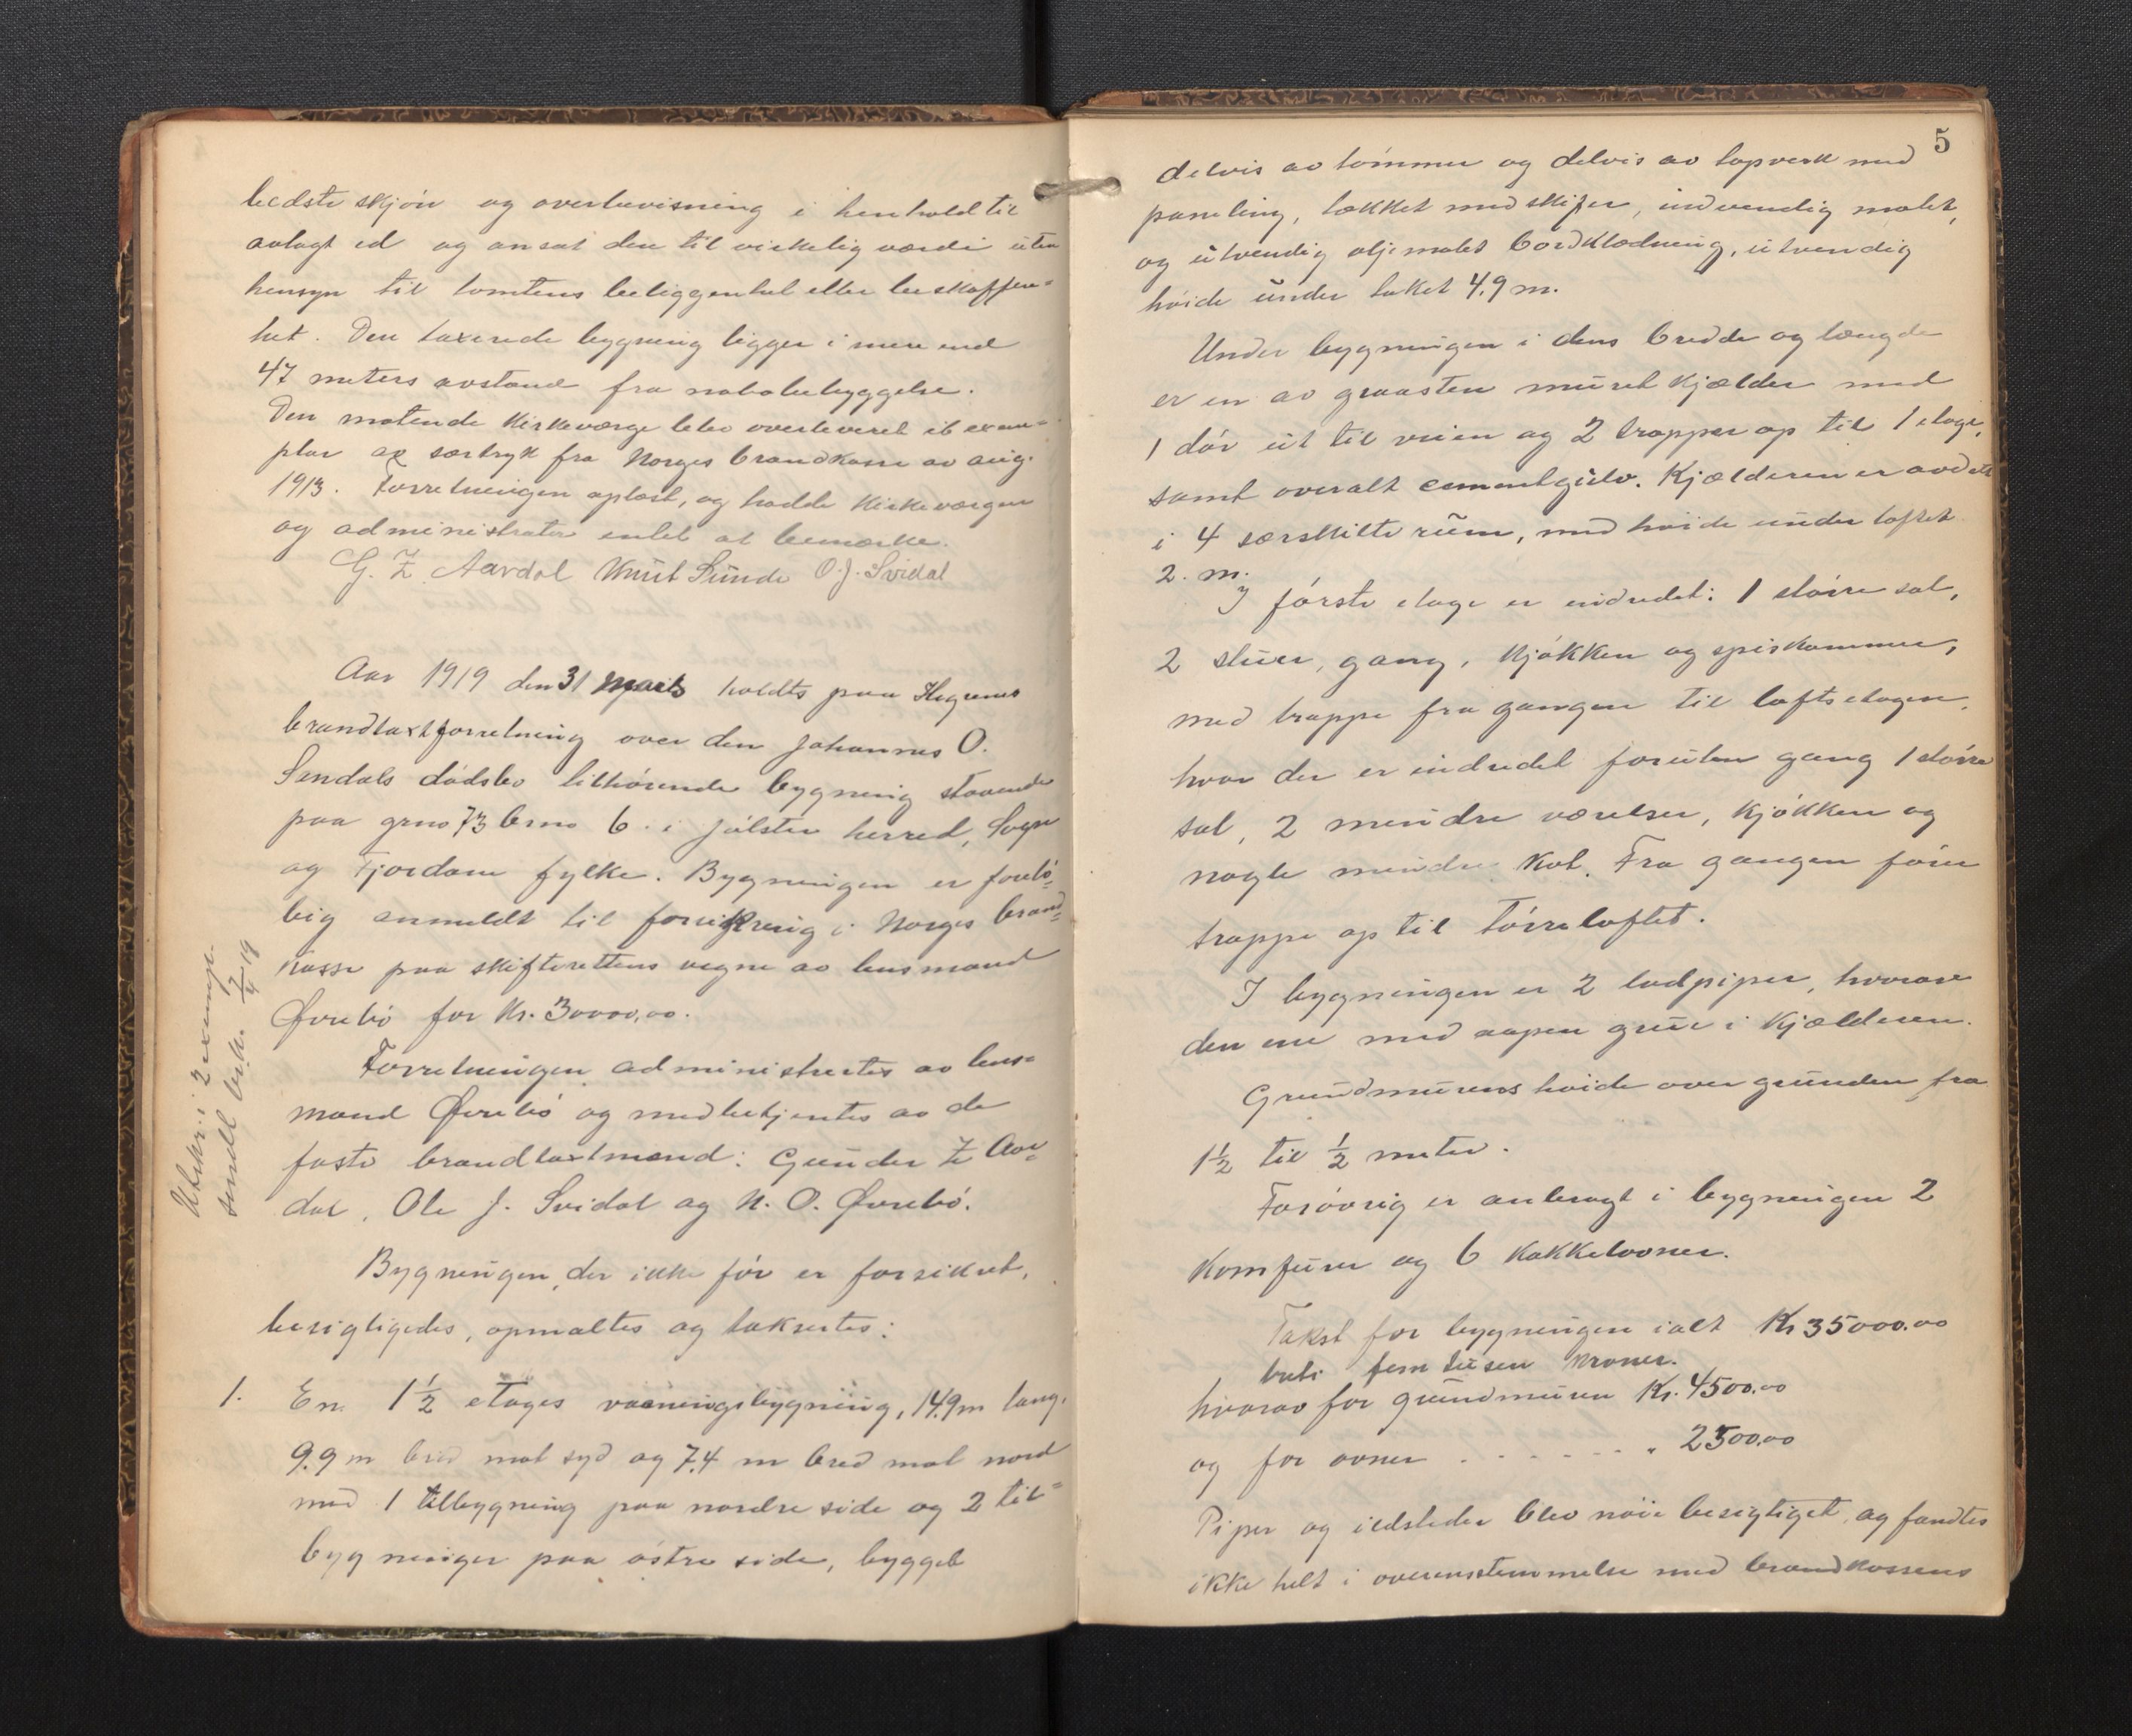 bedste skjøn og overbevisning i henhold til
avlagt ed og ansat den til virkelig værdi uten
hensyn til tomtens beliggenhet eller beskaffen=
het. Den taxerede bygning ligger i mere end
47 meters avstand fra nabobebyggelse.
Den møtende kirkeværge blev overleveret et exem=
plar av særtryk fra Norges Brandkasse av aug.
1913. Forretningen oplæst, og hadde kirkeværgen
og administrator intet at bemærke.
G. Z. Aardal Knut Sunde O. J. Svidal
Aar 1919 den 31 Marts holdts paa Hegrenes
brandtaxtforretning over den Johannes O.
Sandals dødsbo tilhørende bygning staaende
paa grno 73 brno 6 i Jølster herred, Sogn
og Fjordane fylke. Bygningen er forelø=
big anmeldt til forsikring i Norges brand=
kasse paa skifterettens vegne av lensmand
Øvrebø for Kr. 30000,00.
Forretningen administrertes av lens=
mand Øvrebø og medbetjentes av de
faste brandtaxtmænd: Gunder Z Aar=
dal, Ole J. Svidal og N. O. Øvrebø.
Bygningen, der ikke før er forsikret,
besigtigedes, opmaaltes og taksertes:
1. En 1½ etages vaaningsbygning, 14.9 m lang,
9.9 m bred mot syd og 7.4 m bred mot nord
med 1 tilbygning paa nordre side og 2 til=
bygninger paa østre side, bygget
Utskr. i 2 exempl.
sendt br.k. 7/4 19
5
delvis av tømmer og delvis av lapverk med
paneling, tækket med skifer, indvendig malet,
og utvendig oljemalet bordklædning, utvendig
høide under taket 4,9 m.
Under bygningen i dens bredde og længde
er en av graasten muret kjælder med
1 dør ut til veien og 2 trapper op til 1 etage,
samt overalt cementgulv. Kjælderen er avdelt
i 4 særskilte rum, med høide under loftet
2. m.
I første etage er indredet: 1 større sal,
2 stuer, gang, kjøkken og spiskammer,
med trappe fra gangen til loftsetagen,
hvor der er indredet foruten gang 1 større
sal, 2 mindre værelser, kjøkken og
nogle mindre kot. Fra gangen fører
trappe op til Tørreloftet.
I bygningen er 2 ludpiper, hvorav
den ene med aapen grue i kjælderen.
Grundmurens høide over grunden fra
1½ til ½ meter.
Forøvrig er anbragt i bygningen 2
Komfurer og 6 kakkelovner.
Takst for bygningen ialt Kr 35000.00
treti fem tusen kroner.
hvorav for grundmuren Kr. 4500.00
og for ovner . . . . . . " 2500.00
Piper og ildsteder blev nøie besigtiget og fandtes
ikke helt i overensstemmelse med brandkassens